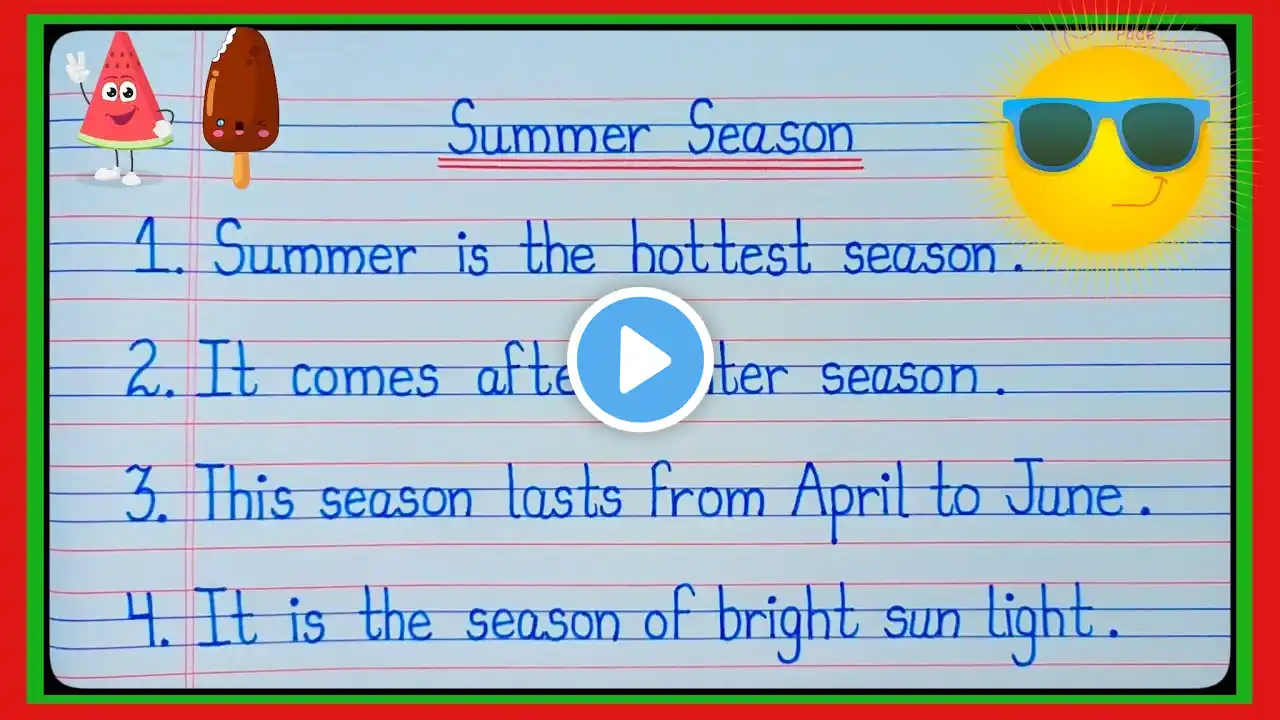 Summer Season
1. Summer is the hottest season.
2. It comes season.
3. This season lasts from April to June.
4. It is the season of bright sun light.